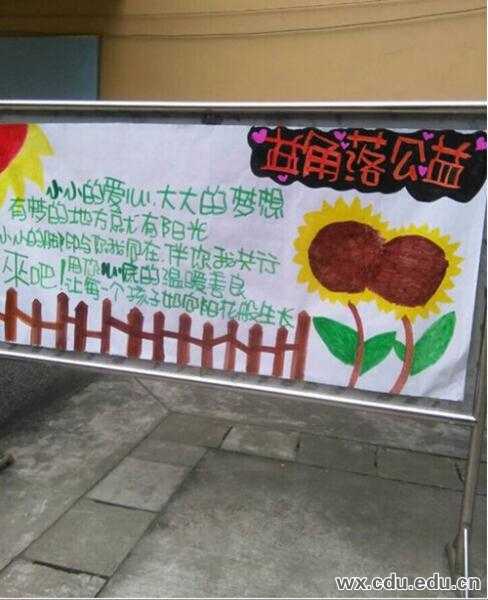 益角落公益
小小的爱心 大大的梦想
有梦的地方就有阳光
小小的脚印你我同在,伴你我共行
来吧!用你心底的温暖善良
让每一个孩子如向阳花般生长
wx.cdu.edu.cn